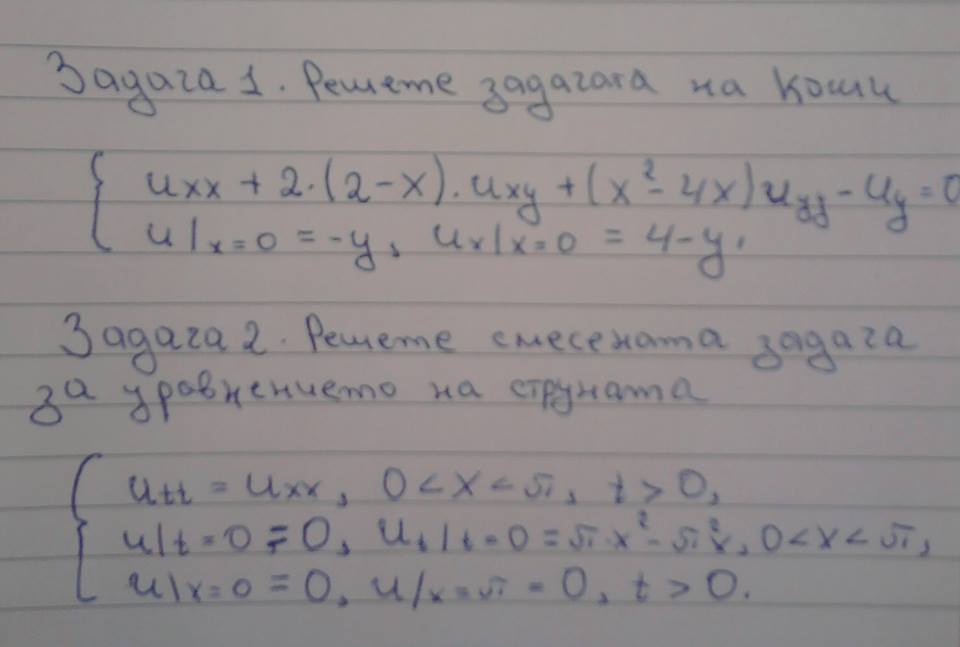 Задача 1. Решете задачата на Коши
{ uxx + 2·(2-x)·uxy + (x² - 4x)uyy - uy = 0
u|x=0 = -y, ux|x=0 = 4-y.
Задача 2. Решете смесената задача
за уравнението на струната
{ utt = uxx, 0 < x < π, t > 0,
u|t=0 = 0, ut|t=0 = π·x² - π²x, 0 < x < π,
u|x=0 = 0, u|x=π = 0, t > 0.